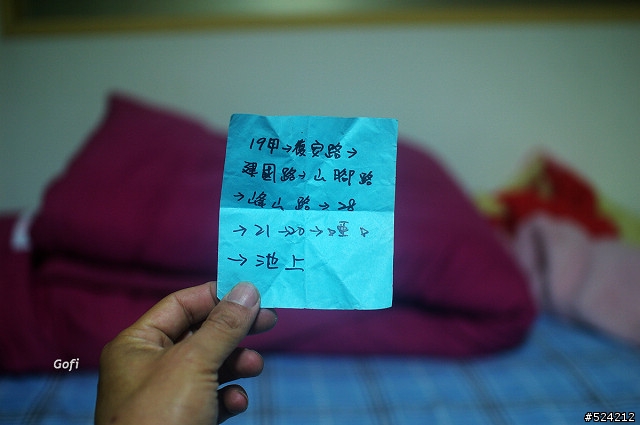 19甲→復安路→
建國路→山腳路
→峰山路→28
→21→20→啞口
→池上
Gofi
#524212